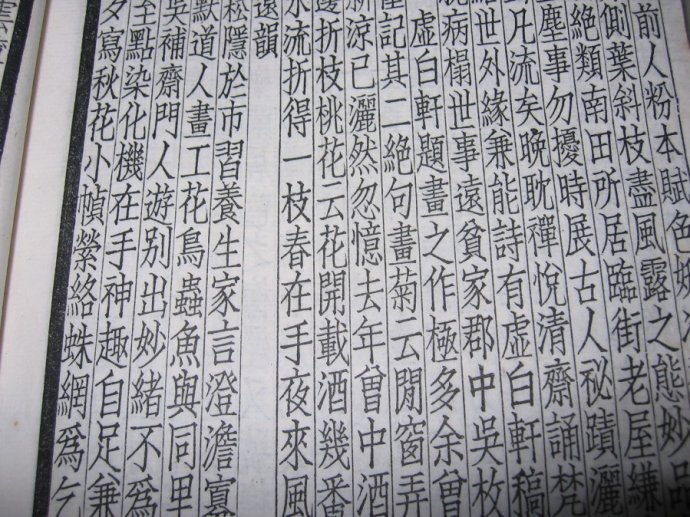 前人粉本賦色妍
側葉斜枝盡風露之態妙品
絕類南田所居臨街老屋縑
塵事勿擾時展古人秘蹟灑
凡流矣晚耽禪悅清齋誦梵
世外緣兼能詩有虛白軒稿
病榻世事遠貧家郡中吳枚
虛白軒題畫之作極多余曾
記其二絕句畫菊云閒窗弄
新涼已灑然忽憶去年曾中酒
折枝桃花云花開載酒幾番
水流折得一枝春在手夜來風
遠韻
松隱於市習養生家言澄澹寡
默道人畫工花鳥蟲魚與同里
吳補齋門人遊別出妙緒不爲
至點染化機在手神趣自足兼
夕寫秋花小幀縈絡蛛網爲乞